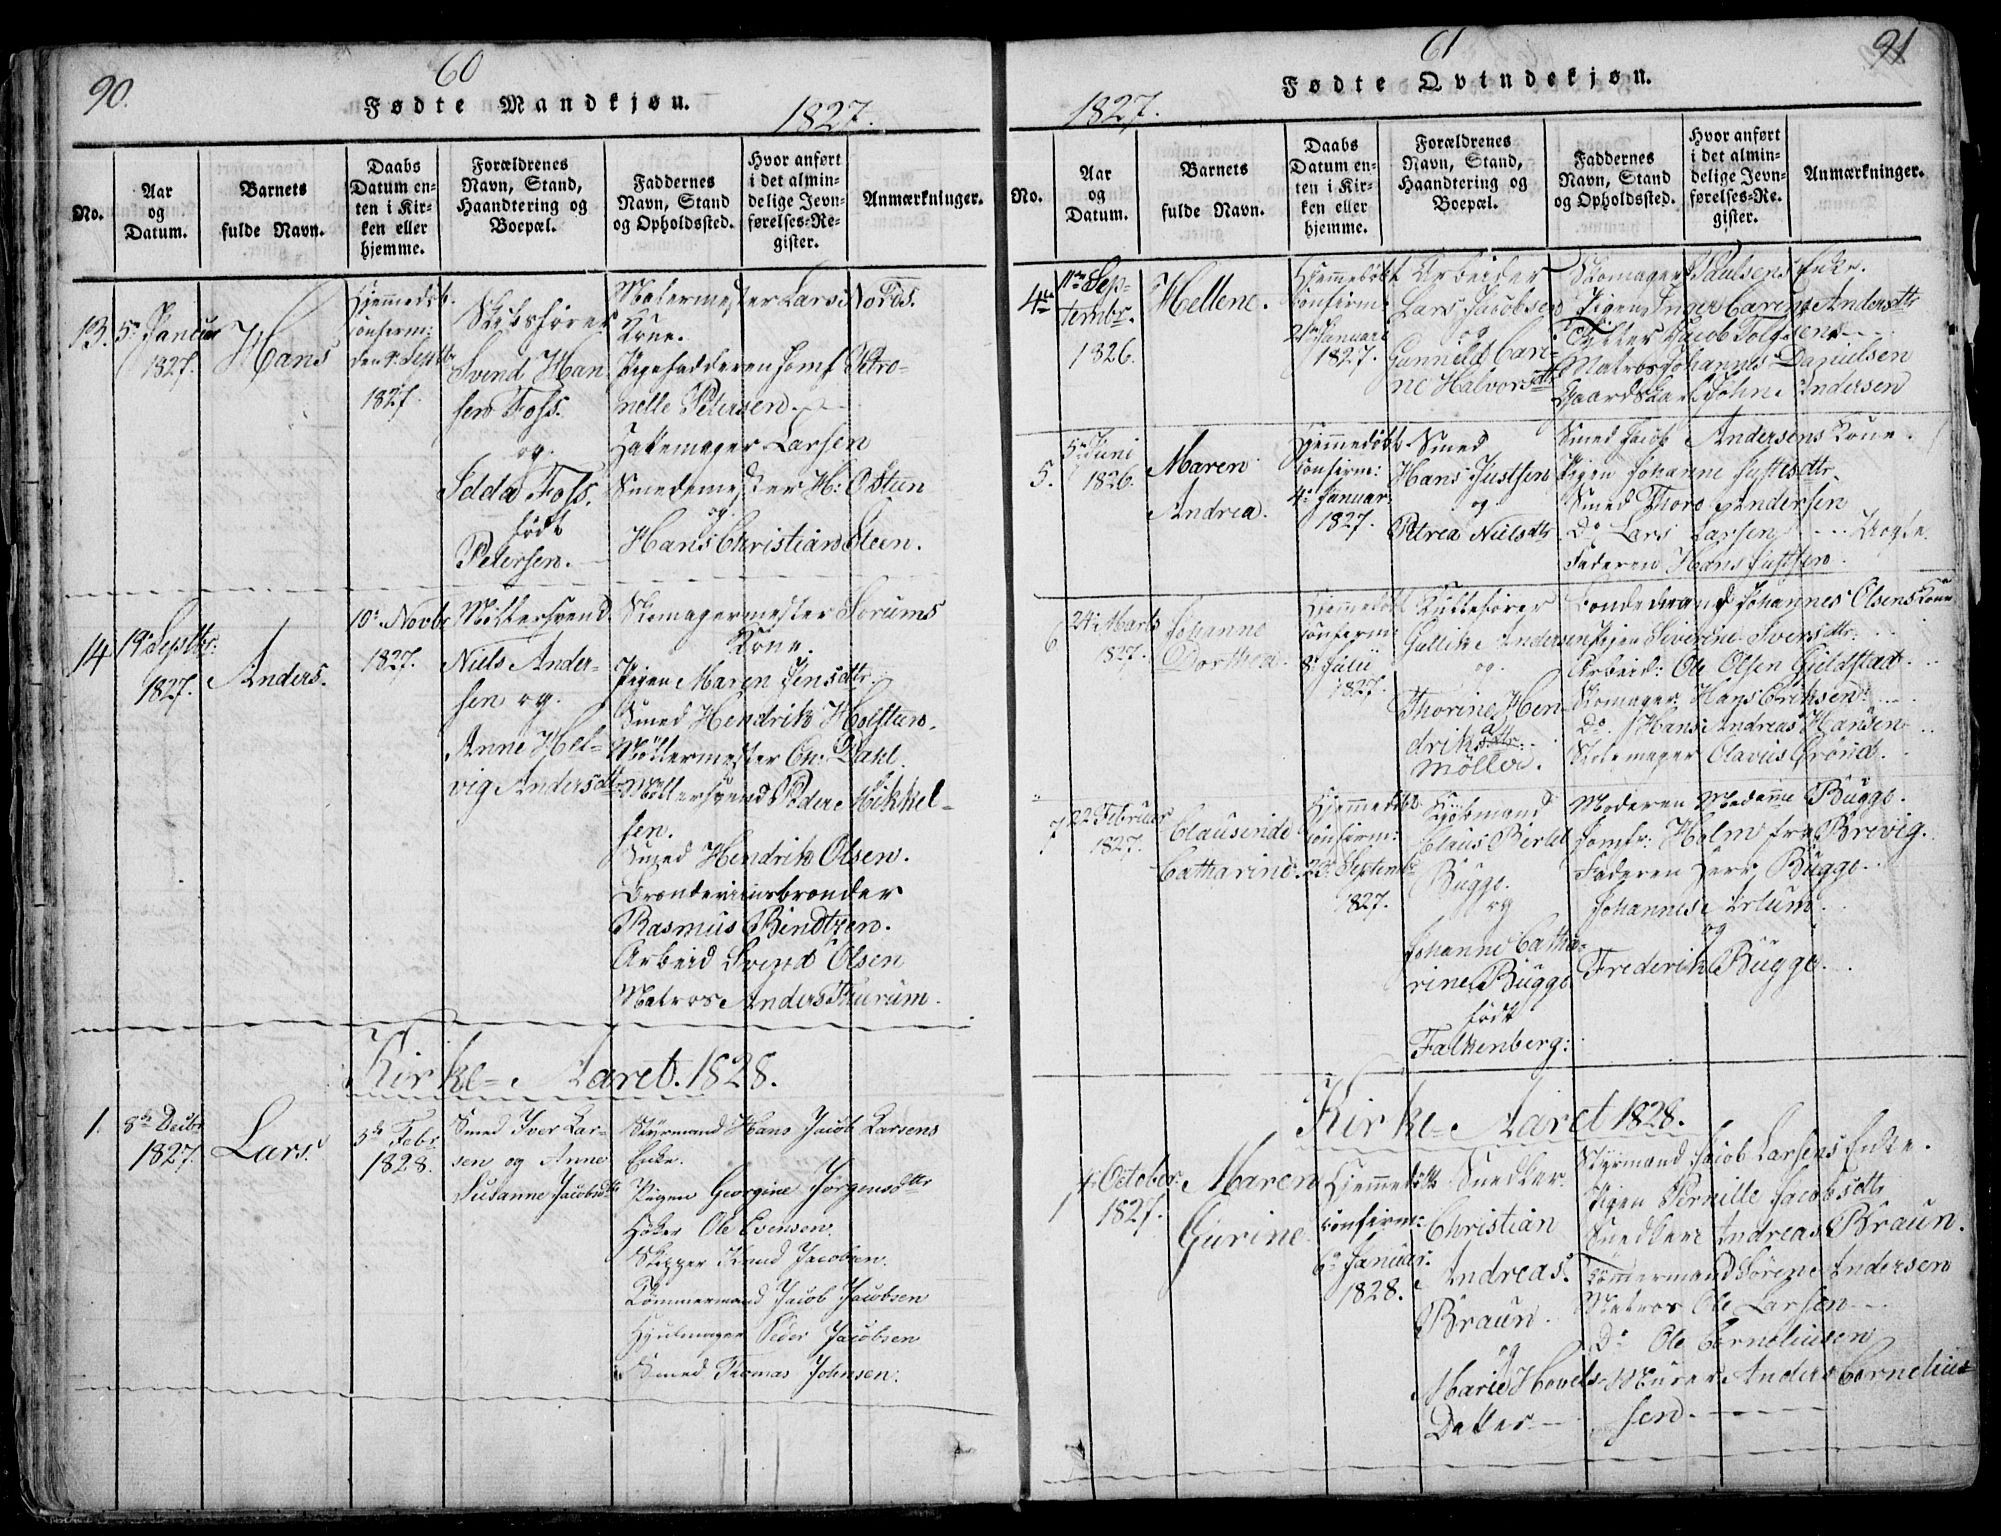 90.
60
Fødte Mandkjøn.
1827.
No.
Aar og Datum.
Barnets fulde Navn.
Daabs Datum enten i Kirken eller hjemme.
Forældrenes Navn, Stand, Haandtering og Boepæl.
Faddernes Navn, Stand og Opholdssted.
Hvor anført i det almindelige Jevnførelses-Register.
Anmærkninger.
13.
5te Januar
1827.
Hans
Hjemmedøb.
confirm:
den 9 Septbr
1827.
Skibsfører
Svend Han
sen Foss.
og
Idda Foss.
født
Petersen.
Malermester Lars Nordis.
Kone.
Pigefadderen Jomf Petro-
nelle Petersen.
Hattemager Larsen
Smedemester H: Ostun
og
Hans Christian Steen.
14
19de Septbr.
1827.
Anders.
10de Novbr
1827.
Møllersvend
Niels Ander-
sen og.
Anne Hel-
vig Andersdtr
Skomagermester Sorums
Kone.
Pigen Maren Jensdtr.
Smed Hendrik Holstun.
Møllermester Ch: Dahl.
Møllersvend Peder Mikkel-
sen.
Smed Hendrik Olsen.
Rasmus Bendtzen.
Arbeid Svend Olsen
Matros Anders Thurum.
Kirke-Aaret. 1828.
1.
8de Decbr
1827.
Lars.
3de Febr
1828.
Smed Iver Lar-
sen og Anne
Susanne Jacobsdtr
Styrmand Hans Jacob Larsens
Enke.
Pigen Georgine Jørgensdtr
Høker Ole Evensen.
Skipper Knud Jacobsen.
Tømmermand Jacob Jacobsen
Hjulmager Peder Jacobsen
Smed Thomas Johnsen.
61
91
Fødte Qvindekjøn.
1827.
No.
Aar og Datum.
Barnets fulde Navn.
Daabs Datum enten i Kirken eller hjemme.
Forældrenes Navn, Stand, Haandtering og Boepæl.
Faddernes Navn, Stand og Opholdssted.
Hvor anført i det almindelige Jevnførelses-Register.
Anmærkninger.
4
11te Sep-
tembr.
1826.
Hellene.
Hjemmedøbt
confirm:
2 Januari
1827.
Arbeider
Lars Jacobsen
og
Gunneld Cari-
ne Halvorsdtr
Skomager Paulsens Enke.
Pigen Inger Carine Andersdtr
Jacob Solgsen
Matros Johannes Danielsen
Gaardskarl John Andersen
5.
5te Juni
1826.
Maren
Andrea.
Hjemmedøbt
confirm:
4de Januar
1827.
Smed
Hans Justsen
og
Petrea Nielsdtr
Smed Jacob Andersens Kone.
Pigen Johanne Justesdtr.
Smed Thore Andersen
Do Lars Larsen
Faderen Hans Justsen.
6
24de Marts
1827.
Johanne
Dorthea.
Hjemmedøbt
confirm:
8de Julii
1827.
Gullik Andersen
og.
Thorine Hen
driksdtr.
Møller.
Bondemand Johannes Olsens Kone
Pigen Siverine Iversdtr.
Arbeid: Ole Olsen Gjeldstad.
Skomager Hans Eriksen.
Do. Hans Andreas Hansen
Olavius Grønd.
7
22 Februar
1827.
Clausinde
Catharine.
Hjemmedøbt
confirm:
23de Septemb
1827.
Kjøbmand
Claus Bertel
Bugge.
og
Johanne Catha-
rine Bugge
født
Falkenberg:
Moderen Madame Bugge.
Jomfr: Holm fra Brevig.
Faderen Herr Bugge.
Johannes Arlum
og
Frederik Bugge.
Kirke-Aaret 1828.
1
4 October.
1827.
Maren
Gurine.
Hjemmedøbt
confirm:
6te Januar.
1828.
Snedker
Christian
Andreas.
Braun.
og
Marie Hovels-
Datter
Styrmand Jacob Larsens Enke.
Pigen Pernille Jacobsdtr
Snedker Andreas Braun.
Tømmermand Søren Andersen
Matros Ole Larsen
Do Ole Corneliusen
Murer Anders Cornelius-
sen.